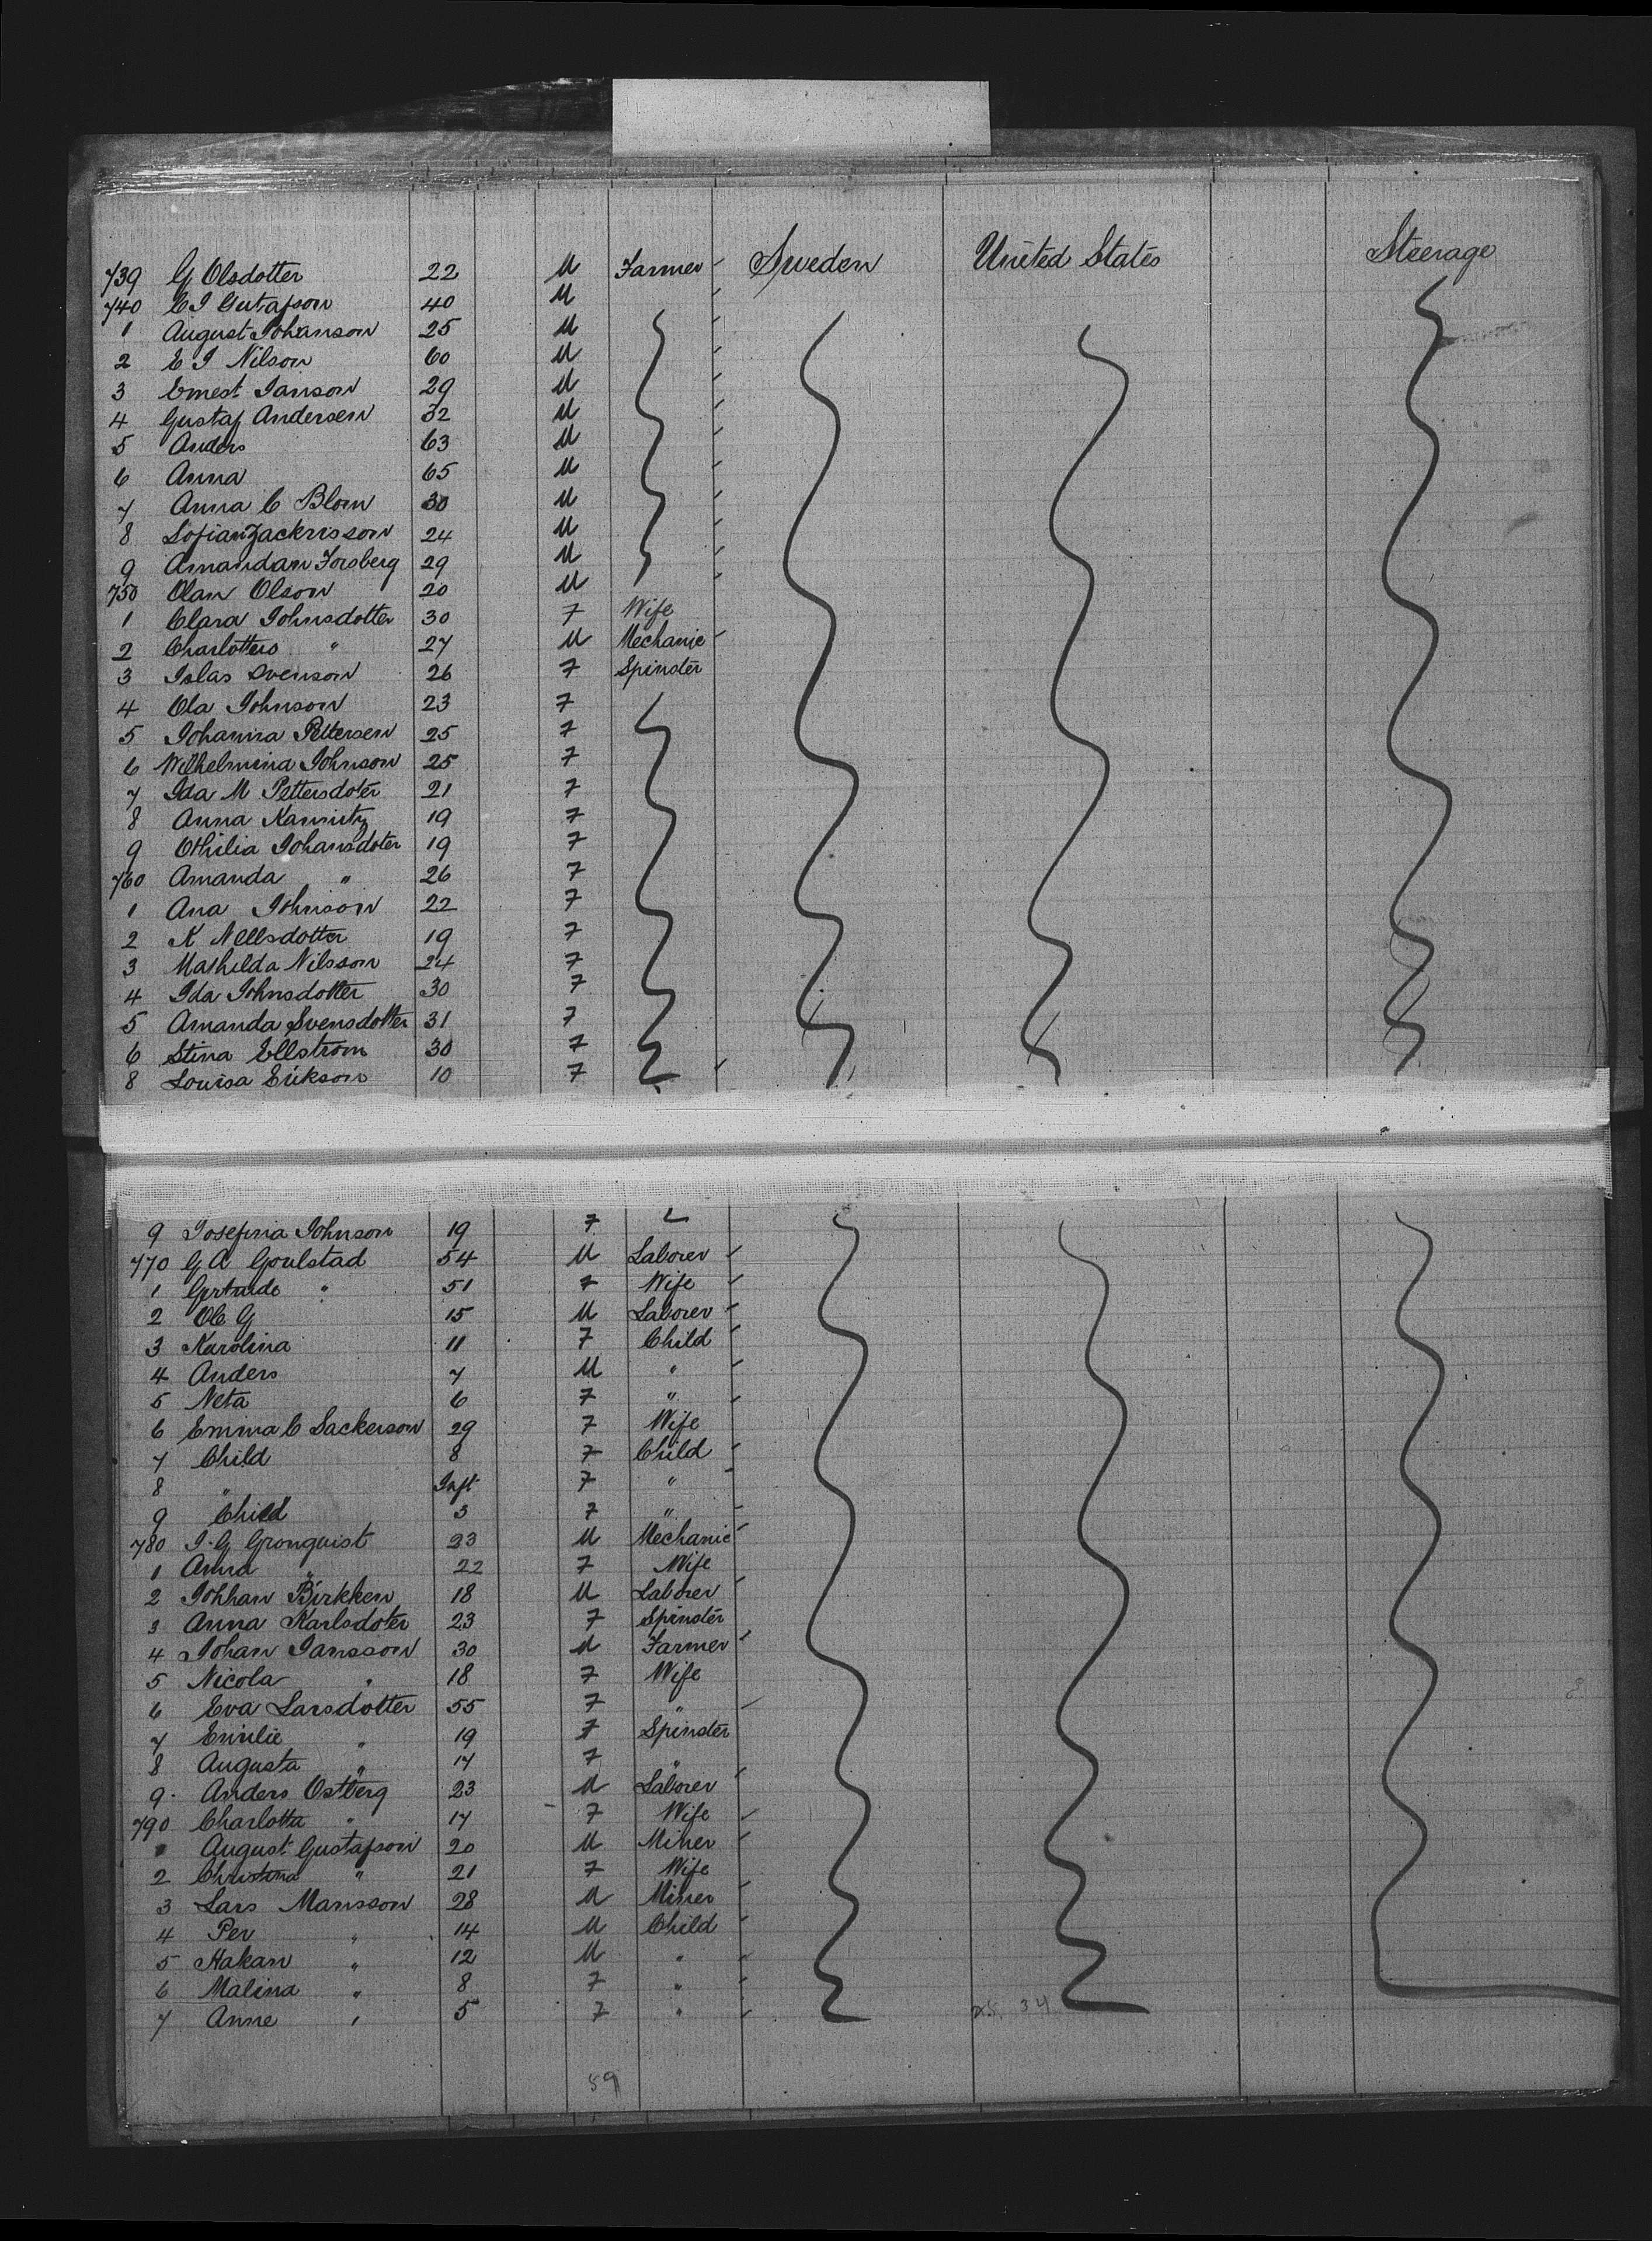 739 G Olsdotter 22 M Farmer Sweden United States Steerage
740 C I Gustafson 40 M
1 August Johanson 25 M
2 E I Nilson 60 M
3 Ernest Janson 29 M
4 Gustaf Andersen 32 M
5 Anders 63 M
6 Anna 65 M
7 Anna C Blom 30 M
8 Sofian Zackrisson 24 M
9 Amandam Forsberg 29 M
750 Olan Olson 20 M
1 Clara Johnsdotter 30 F Wife
2 Charlotters " 27 M Mechanic
3 Islas Svenson 26 F Spinster
4 Ola Johnson 23 F
5 Johanna Pettersen 25 F
6 Wilhelmina Johnson 25 F
7 Ida M Pettersdoter 21 F
8 Anna 19 F
9 Othilia Johansdoter 19 F
760 Amanda " 26 F
1 Ana Johnson 22 F
2 K Nellsdotter 19 F
3 Mathilda Nilsson 24 F
4 Ida Johnsdotter 30 F
5 Amanda Svensdotter 31 F
6 Stina Ellstrom 30 F
8 Louisa Erikson 10 F
9 Josefina Johnson 19 F
770 G A Goulstad 54 M Laborer
1 Gertrude " 51 F Wife
2 Ole G 15 M Laborer
3 Karolina 11 F Child
4 Anders 7 M "
5 Neta 6 F "
6 Emma C Sackerson 29 F Wife
7 Child 8 F Child
8 " Inft F "
9 Child 3 F "
780 I. G Gronquist 23 M Mechanic
1 Anna " 22 F Wife
2 Johhan Birkken 18 M Laborer
3 Anna Karlsdoter 23 F Spinster
4 Johan Jansson 30 M Farmer
5 Nicola " 18 F Wife
6 Eva Larsdotter 55 F "
7 Emilie " 19 F Spinster
8 Augusta " 17 F "
9 Anders Ostberg 23 M Laborer
790 Charlotta " 17 F Wife
August Gustafson 20 M Miner
2 Christina " 21 F Wife
3 Lars Mansson 28 M Miner
4 Per " 14 M Child
5 Hakan " 12 M "
6 Malina " 8 F "
7 Anne " 5 F " 25. 34
59